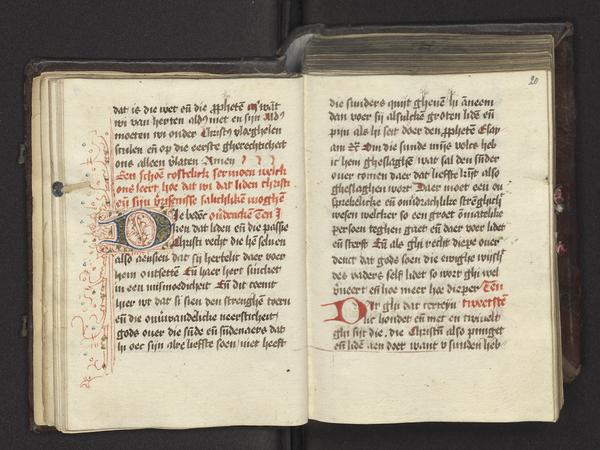 dat is die wet en̄ die ꝓphetē Wāt
wi van herten aldꝰ niet en sijn Aldꝰ
moeten wi onder Christꝰ vloeghelen
sculen en̄ op die eerste gherechticheit
ons alleen vlaten Amen
Een schoē costelick sermoen welck
ons leert hoe dat wi dat liden christi
en̄ sijn salichlikē moghē
Ie beder oudencken Ten J
sien dat liden en̄ die passie
Christi recht die hē seluen
also aensien dat sij hertelic daer voer
hem ontsettē En̄ haer hert sincket
in een mismoedicheit En̄ dit coemt
hier wt dat si sien den strenghē toern
en̄ die onuwandelike neersticheit
gods ouer die sn̄de en̄ sn̄denaers dat
hi oec sijn alre liefste soen niet heeft
20
die sunders quijt gheuē hi aneem
dan voer sij alsulckē groten lidē en̄
pijn als hi seit doer den ꝓphetē Esay
am Om die sunde mijs volcs heb
ic hem gheslaghē wat sal den sūder
ouer comen daer dat liefste kijt also
gheslaghen wort Daer moet een on
sprekelicke en̄ ondrachlike strēglich
wesen welcker so een groet ōmatelike
persoen teghen gaet en̄ daer voer lidet
en̄ sterft En̄ als ghi recht diepe ouer
denct dat gods soen die ewighe wijsh
des vaders self lidet so wort ghi wel
vueert en̄ hoe meer hoe dieper Ten
Dat ghi dat tweestē
hondet en̄ met en twiuelt
ghi sijt die, die Christū also pijniget
en̄ lidē aen doet want v sunden heb